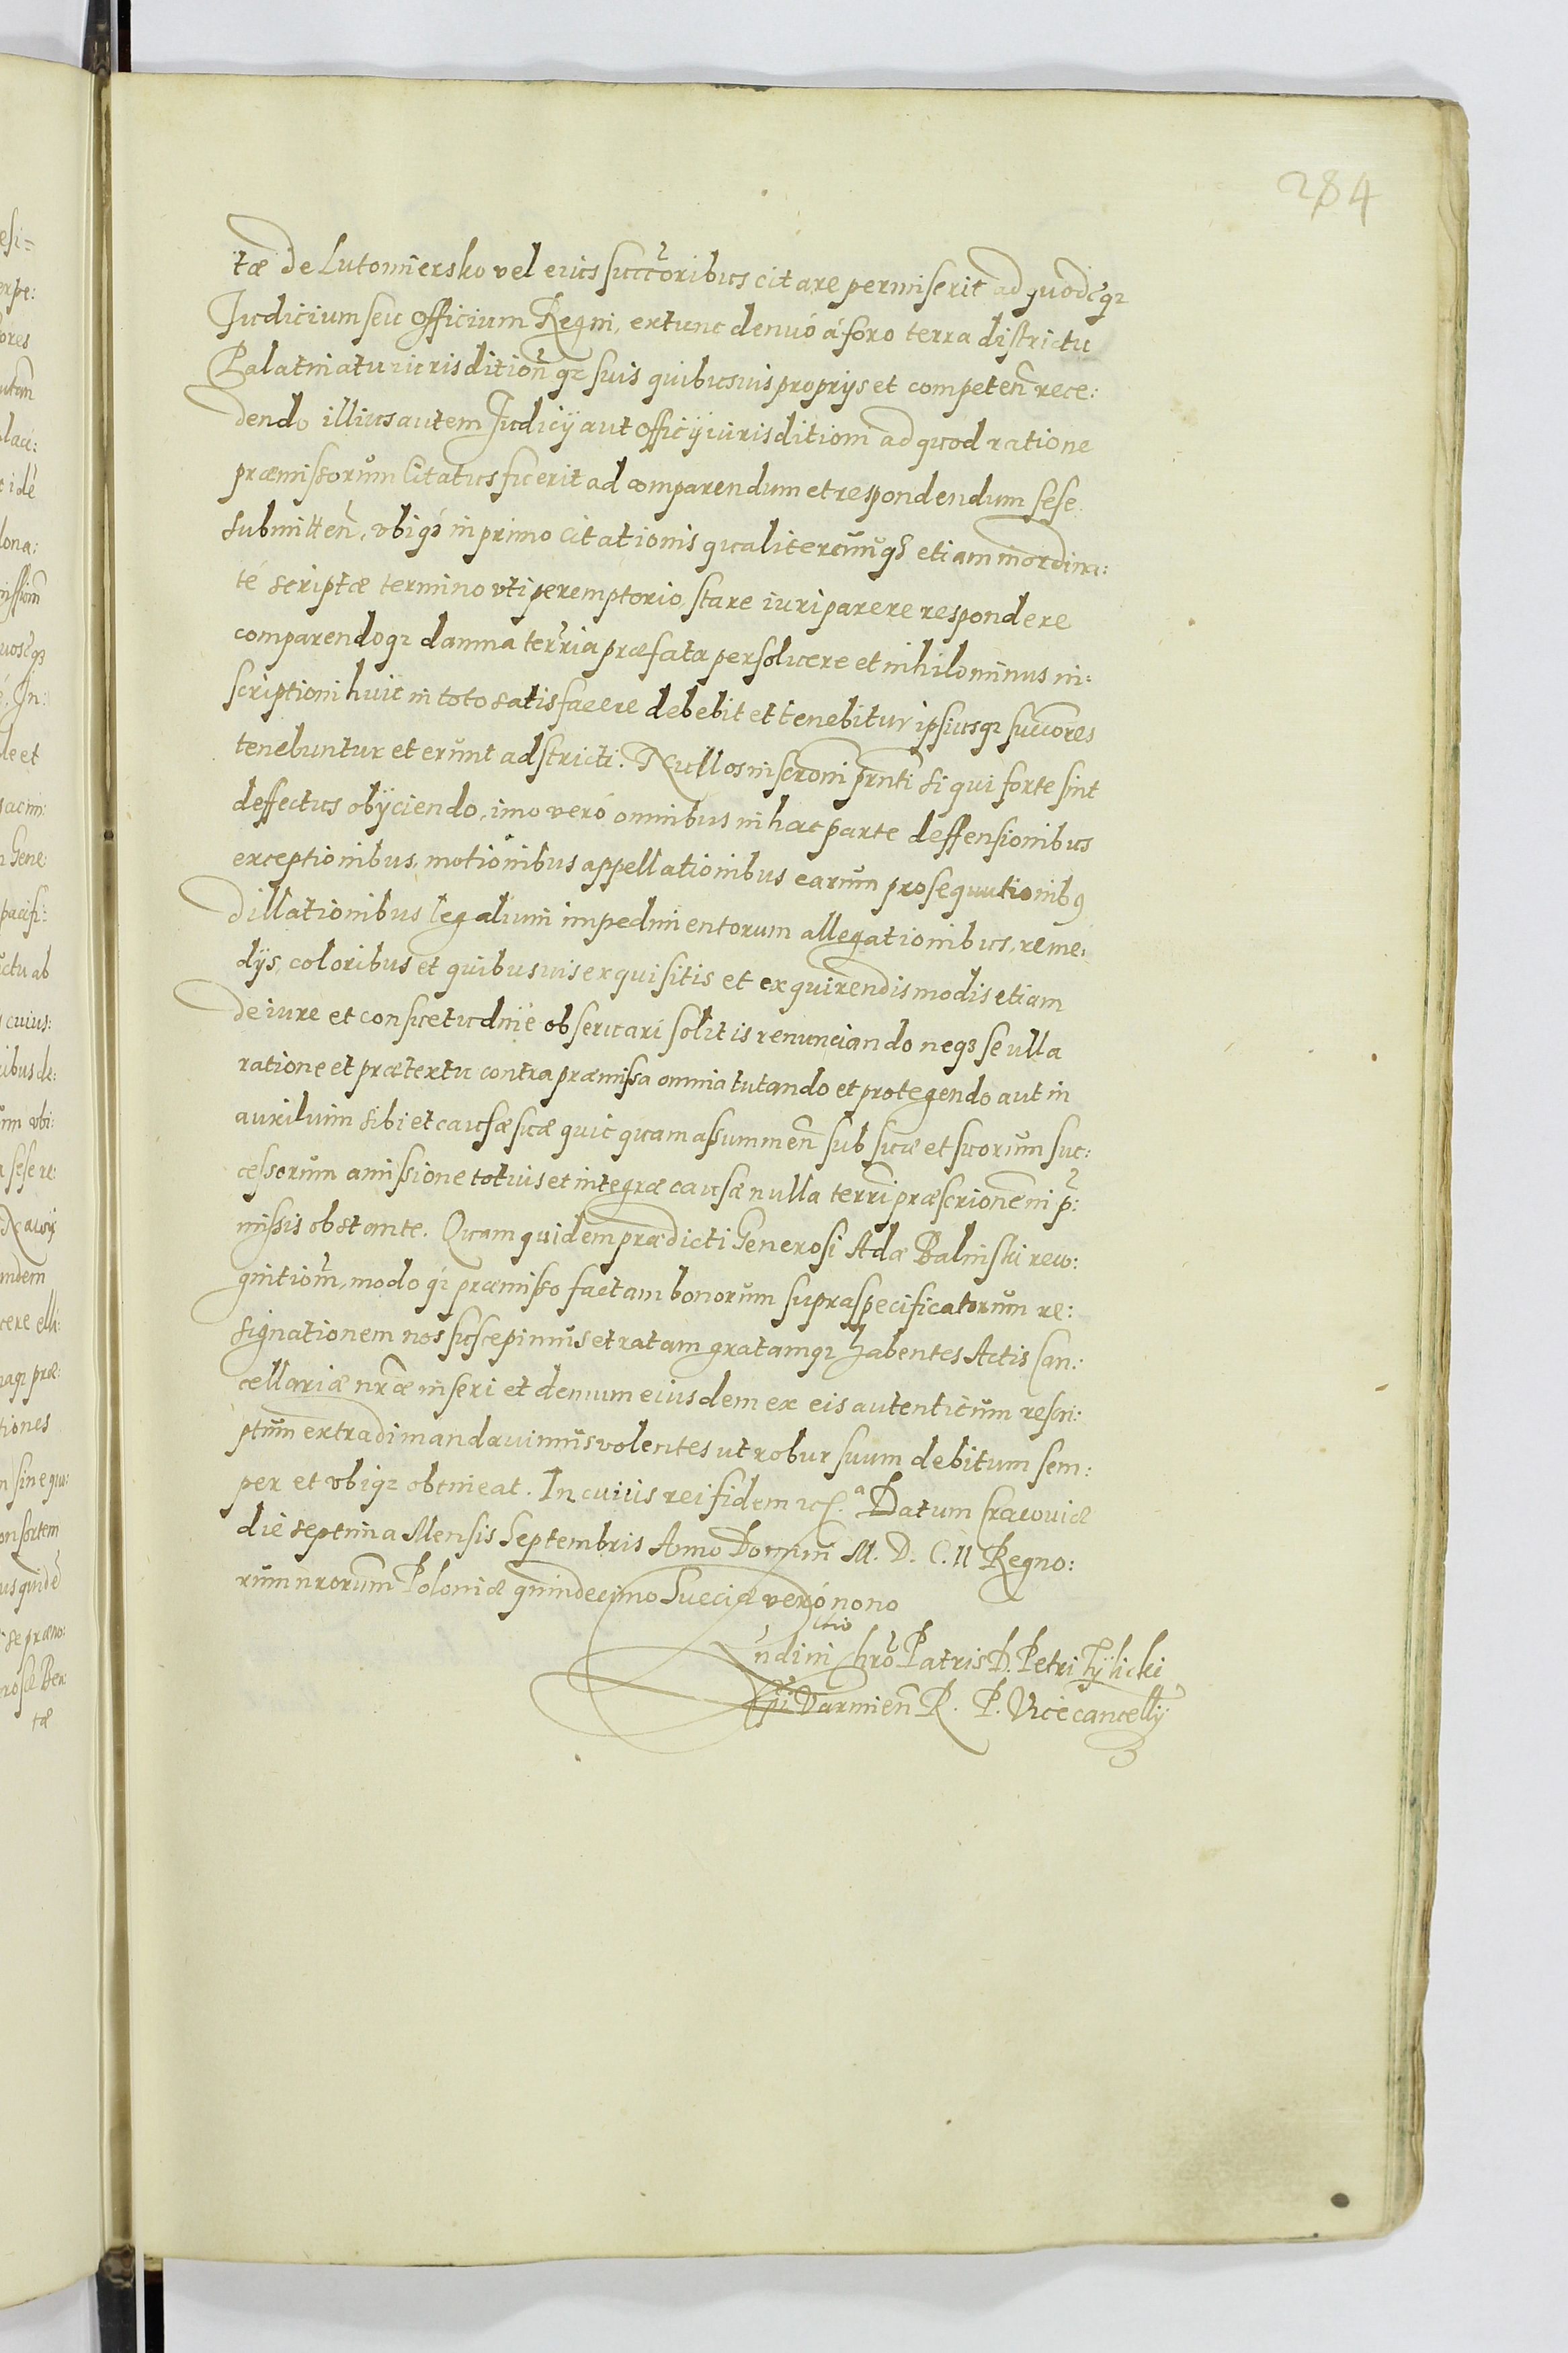 284
tæ de Lutomiersko vel eius succ̃oribus citare permiserit ad quodcũqꝫ
Iudicium seu Officium Regni, extunc denuó á foro terra districtu
Palatinatu iurisdition̄qꝫ suis quibusuis proprijs et competen̄ rece:
dendo illius autem Iudicij aut Officij iurisditiom̄ ad quod ratione
præmissorum Citatus fuerit ad comparendum et respondendum sese
submitten̄, vbiqꝫ in primo citationis qualitercunqꝫ etiam inordina:
té scriptæ termino vti peremptorio, stare iuri parere respondere
comparendoqꝫ damna terr̃ia præfata persoluere et nihilominus in:
scriptioni huic in toto satisfacere debebit et tenebitur ipsiusqꝫ succ̃ores
tenebuntur et erunt adstricti. Nullos inscr̃oni pr̃nti si qui forte sint
deffectus obijciendo, imo veró omnibus in hac parte deffensionibus
exceptionibus, motionibus appellationibus earum prosequutionibꝰ
dillationibus legalium impedimentorum allegationibus, reme:
dijs, coloribus et quibusuis exquisitis et exquirendis modis etiam
de iure et consuetudine obseruari solitis renunciando neqꝫ se ulla
ratione et prætextu contra præmissa omnia tutando et protegendo aut in
auxilium sibi et causæ suæ quic quam assummen̄ sub suæ et suorum suc:
cessorum amissione totius et integræ causæ nulla terr̃i præscr̃ione in p̃:
missis obstante. Quam quidem prædicti Generosi Adæ Balinski reco:
gnitiom̄, modo qꝫ præmisso factam bonorum supraspecificatorum re:
signationem nos suscepimus et ratam gratamqꝫ habentes Actis Can:
cellariæ nr̃æ inseri et demum eiusdem ex eis autenticum rescri:
ptum extradi mandauimus volentes ut robur suum debitum sem:
per et vbiqꝫ obtineat. In cuius rei fidem Datum Cracouiæ
die septima Mensis Septembris Anno Domini M. D. C. II Regno:
rum nrorum Poloniæ quindecimo Sueciæ veró nono
Rn̄dim̄i Chr̃o Patris D. Petri Tÿlicki
Ep̃i Varmien̄ R. P. Vicecancellÿ